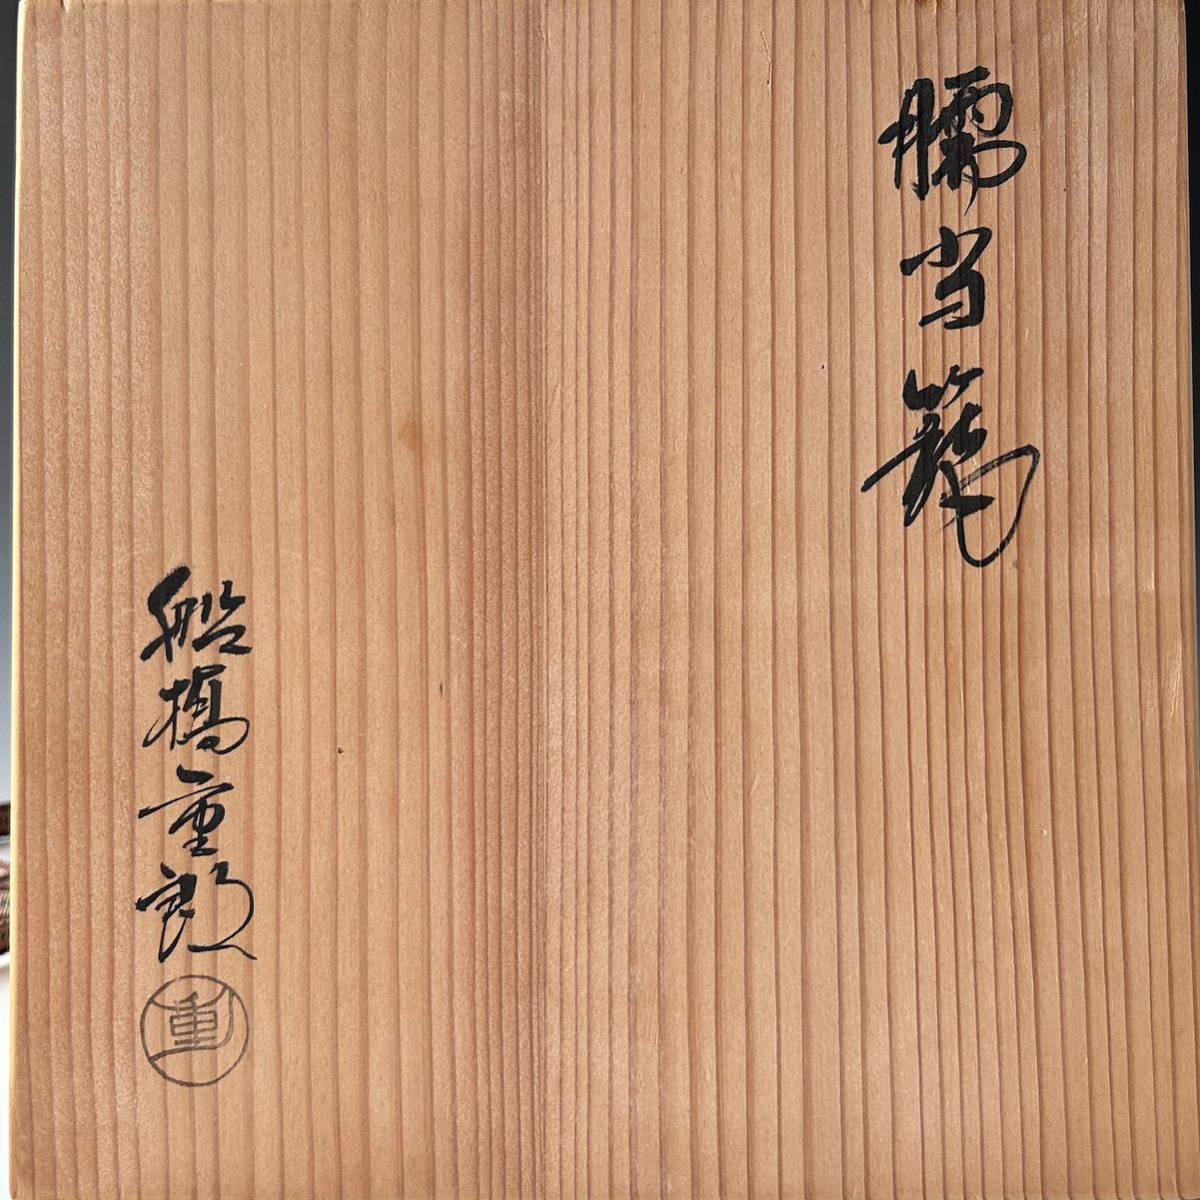 臑当籠
船橋重郎
重